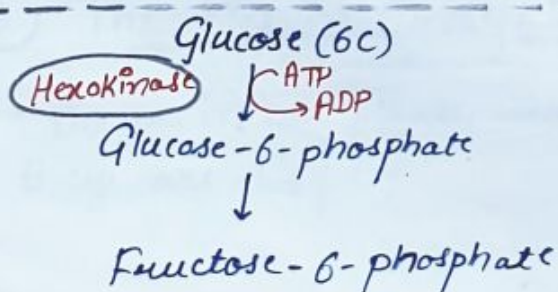 Glucose (6C)
Hexokinase
ATP
ADP
Glucose-6-phosphate
Fructose-6-phosphate